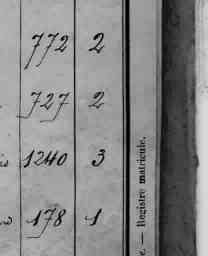 772 2
727 2
1240 3
178 1
e. — Registre matricule.